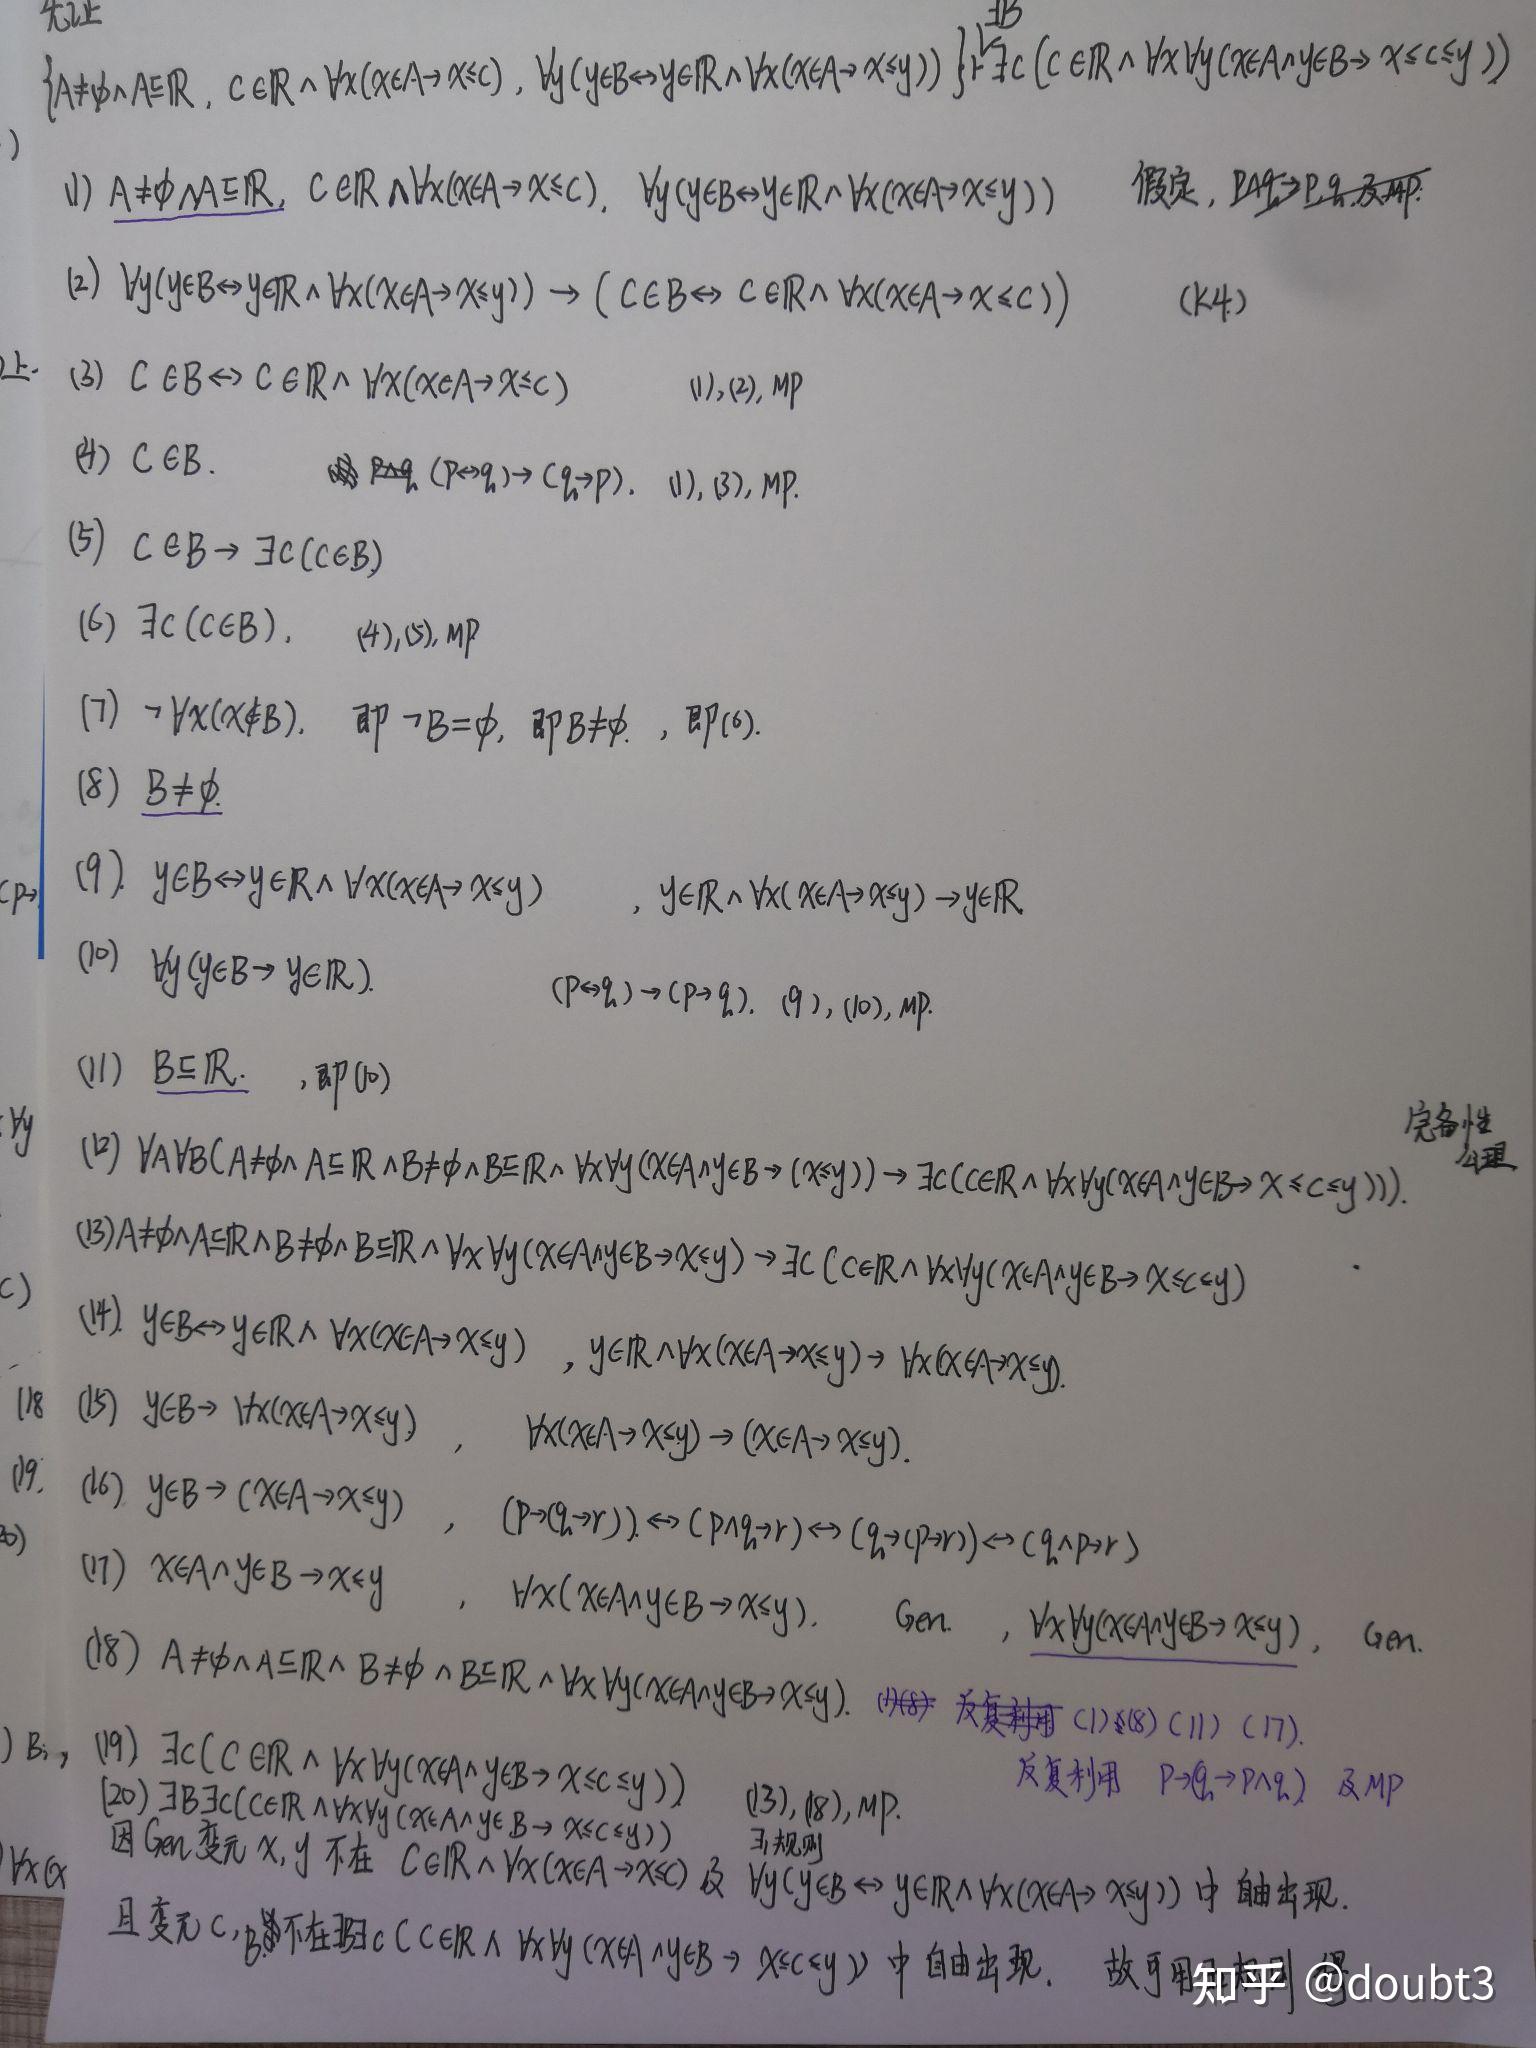 先证
∃B
{A≠∅∧A⊆ℝ, C∈ℝ∧∀x(x∈A→x≤c), ∀y(y∈B↔y∈ℝ∧∀x(x∈A→x≤y))}⊢∃c(C∈ℝ∧∀x∀y(x∈A∧y∈B→x≤c≤y))
(1) A≠∅∧A⊆ℝ, C∈ℝ∧∀x(x∈A→x≤c), ∀y(y∈B↔y∈ℝ∧∀x(x∈A→x≤y)) 假定, P∧q→P,q及MP.
(2) ∀y(y∈B↔y∈ℝ∧∀x(x∈A→x≤y))→(C∈B↔C∈ℝ∧∀x(x∈A→x≤c)) (K4)
(3) C∈B↔C∈ℝ∧∀x(x∈A→x≤c) (1),(2),MP
(4) C∈B. P∧q (P↔q)→(q→P). (1),(3),MP.
(5) C∈B→∃c(C∈B)
(6) ∃c(C∈B). (4),(5),MP
(7) ¬∀x(x∉B). 即¬B=∅, 即B≠∅. , 即(6).
(8) B≠∅.
(9). y∈B↔y∈ℝ∧∀x(x∈A→x≤y) , y∈ℝ∧∀x(x∈A→x≤y)→y∈ℝ
(10) ∀y(y∈B→y∈ℝ). (P↔q)→(P→q). (9),(10),MP.
(11) B⊆ℝ. , 即(10)
(12) ∀A∀B(A≠∅∧A⊆ℝ∧B≠∅∧B⊆ℝ∧∀x∀y(x∈A∧y∈B→(x≤y))→∃c(C∈ℝ∧∀x∀y(x∈A∧y∈B→x≤c≤y))). 完备性公理
(13) A≠∅∧A⊆ℝ∧B≠∅∧B⊆ℝ∧∀x∀y(x∈A∧y∈B→x≤y)→∃c(C∈ℝ∧∀x∀y(x∈A∧y∈B→x≤c≤y)
(14). y∈B↔y∈ℝ∧∀x(x∈A→x≤y) , y∈ℝ∧∀x(x∈A→x≤y)→∀x(x∈A→x≤y).
(15) y∈B→∀x(x∈A→x≤y) , ∀x(x∈A→x≤y)→(x∈A→x≤y).
(16) y∈B→(x∈A→x≤y) , (P→(q→r))↔(P∧q→r)↔(q→(P→r))↔(q∧P→r)
(17) x∈A∧y∈B→x≤y , ∀x(x∈A∧y∈B→x≤y). Gen. , ∀x∀y(x∈A∧y∈B→x≤y), Gen.
(18) A≠∅∧A⊆ℝ∧B≠∅∧B⊆ℝ∧∀x∀y(x∈A∧y∈B→x≤y). (1)(8) 反复利用 (1)(8)(11)(17).
反复利用 P→(q→P∧q) 及MP
(19) ∃c(C∈ℝ∧∀x∀y(x∈A∧y∈B→x≤c≤y)) (13),(18),MP.
(20) ∃B∃c(C∈ℝ∧∀x∀y(x∈A∧y∈B→x≤c≤y)) ∃₁规则
因Gen变元x,y不在 C∈ℝ∧∀x(x∈A→x≤c)及∀y(y∈B↔y∈ℝ∧∀x(x∈A→x≤y))中自由出现.
且变元C,B不在∃B∃c(C∈ℝ∧∀x∀y(x∈A∧y∈B→x≤c≤y))中自由出现. 故可用
知乎 @doubt3